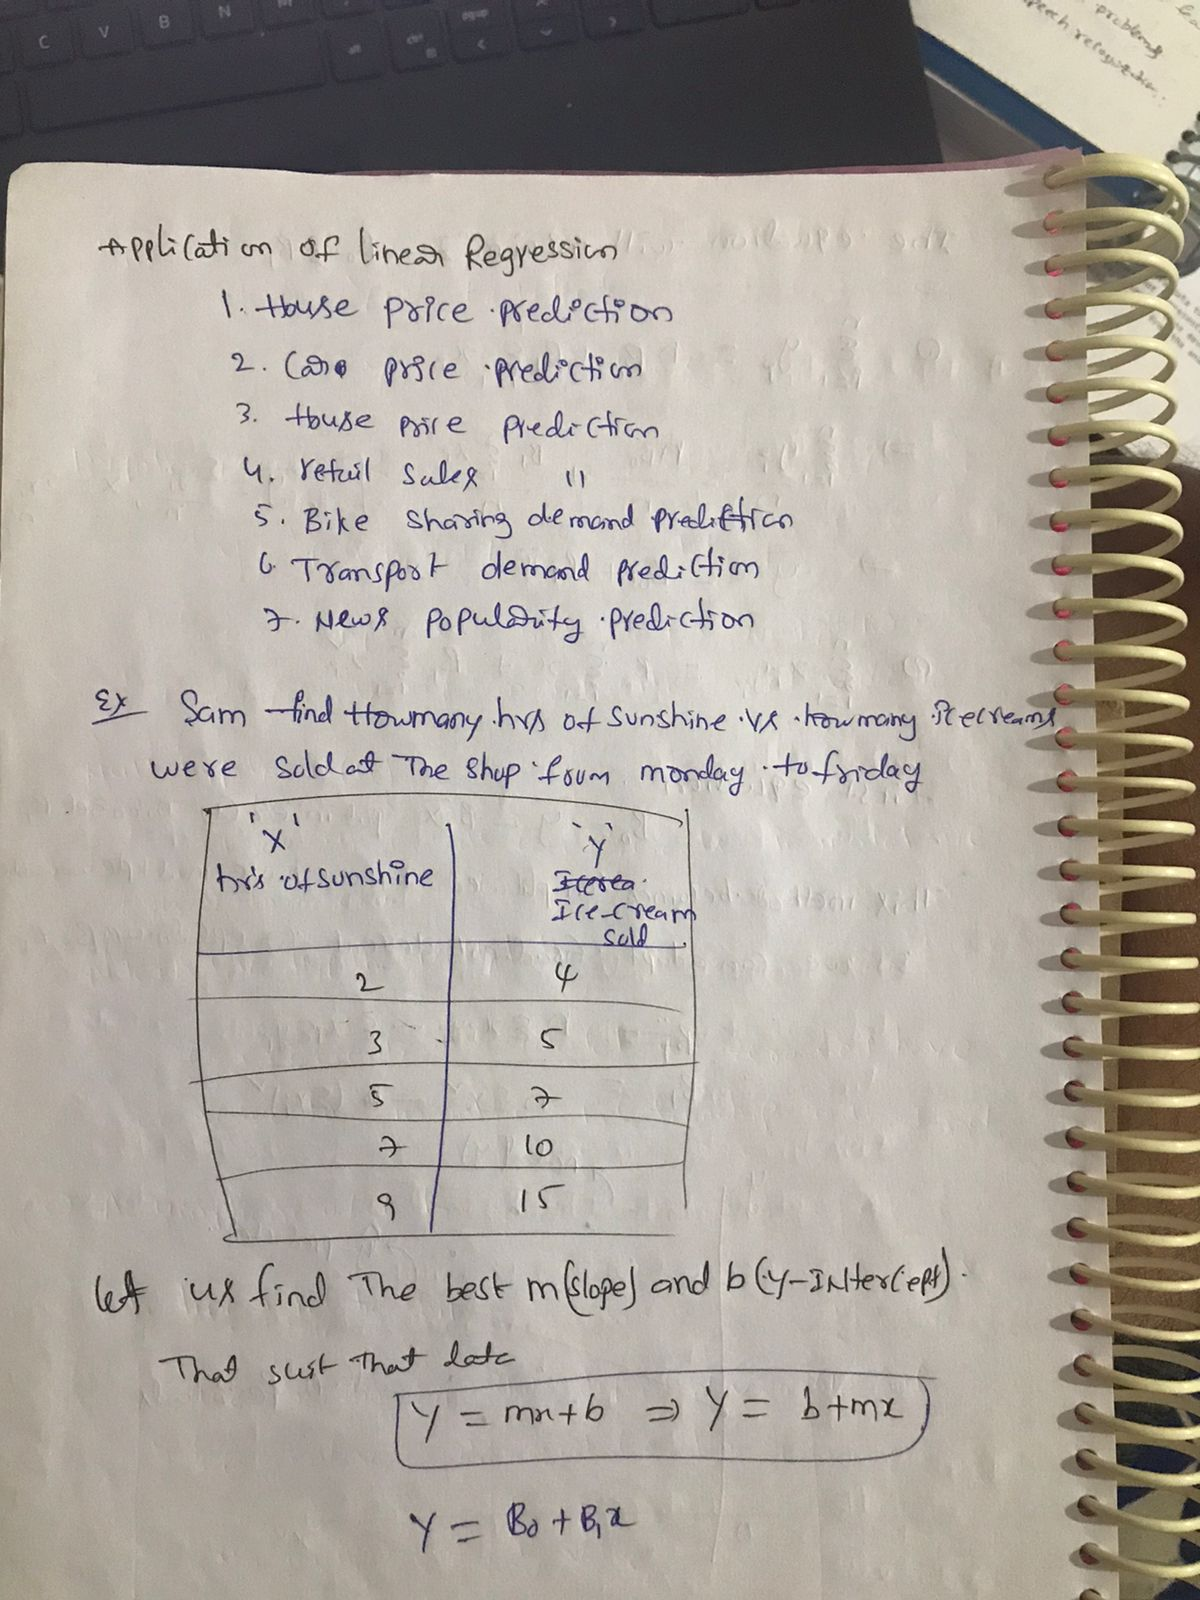 C V B N
problems
speech recogni
Application of linear Regression
1. House price prediction
2. Car price prediction
3. House price prediction
4. retail sales "
5. Bike sharing demand prediction
6. Transport demand prediction
7. News popularity prediction
Ex Sam find Howmany hrs of sunshine vs howmany icecreams
were sold at The shop from monday to friday
'X' 'Y'
hr's of sunshine Icerea
Ice-cream
sold
2 4
3 5
5 7
7 10
9 15
let us find The best m(slope) and b(y-Intercept)
That suit that data
Y = mx+b ⇒ Y = b+mx
Y = B₀ + B₁x